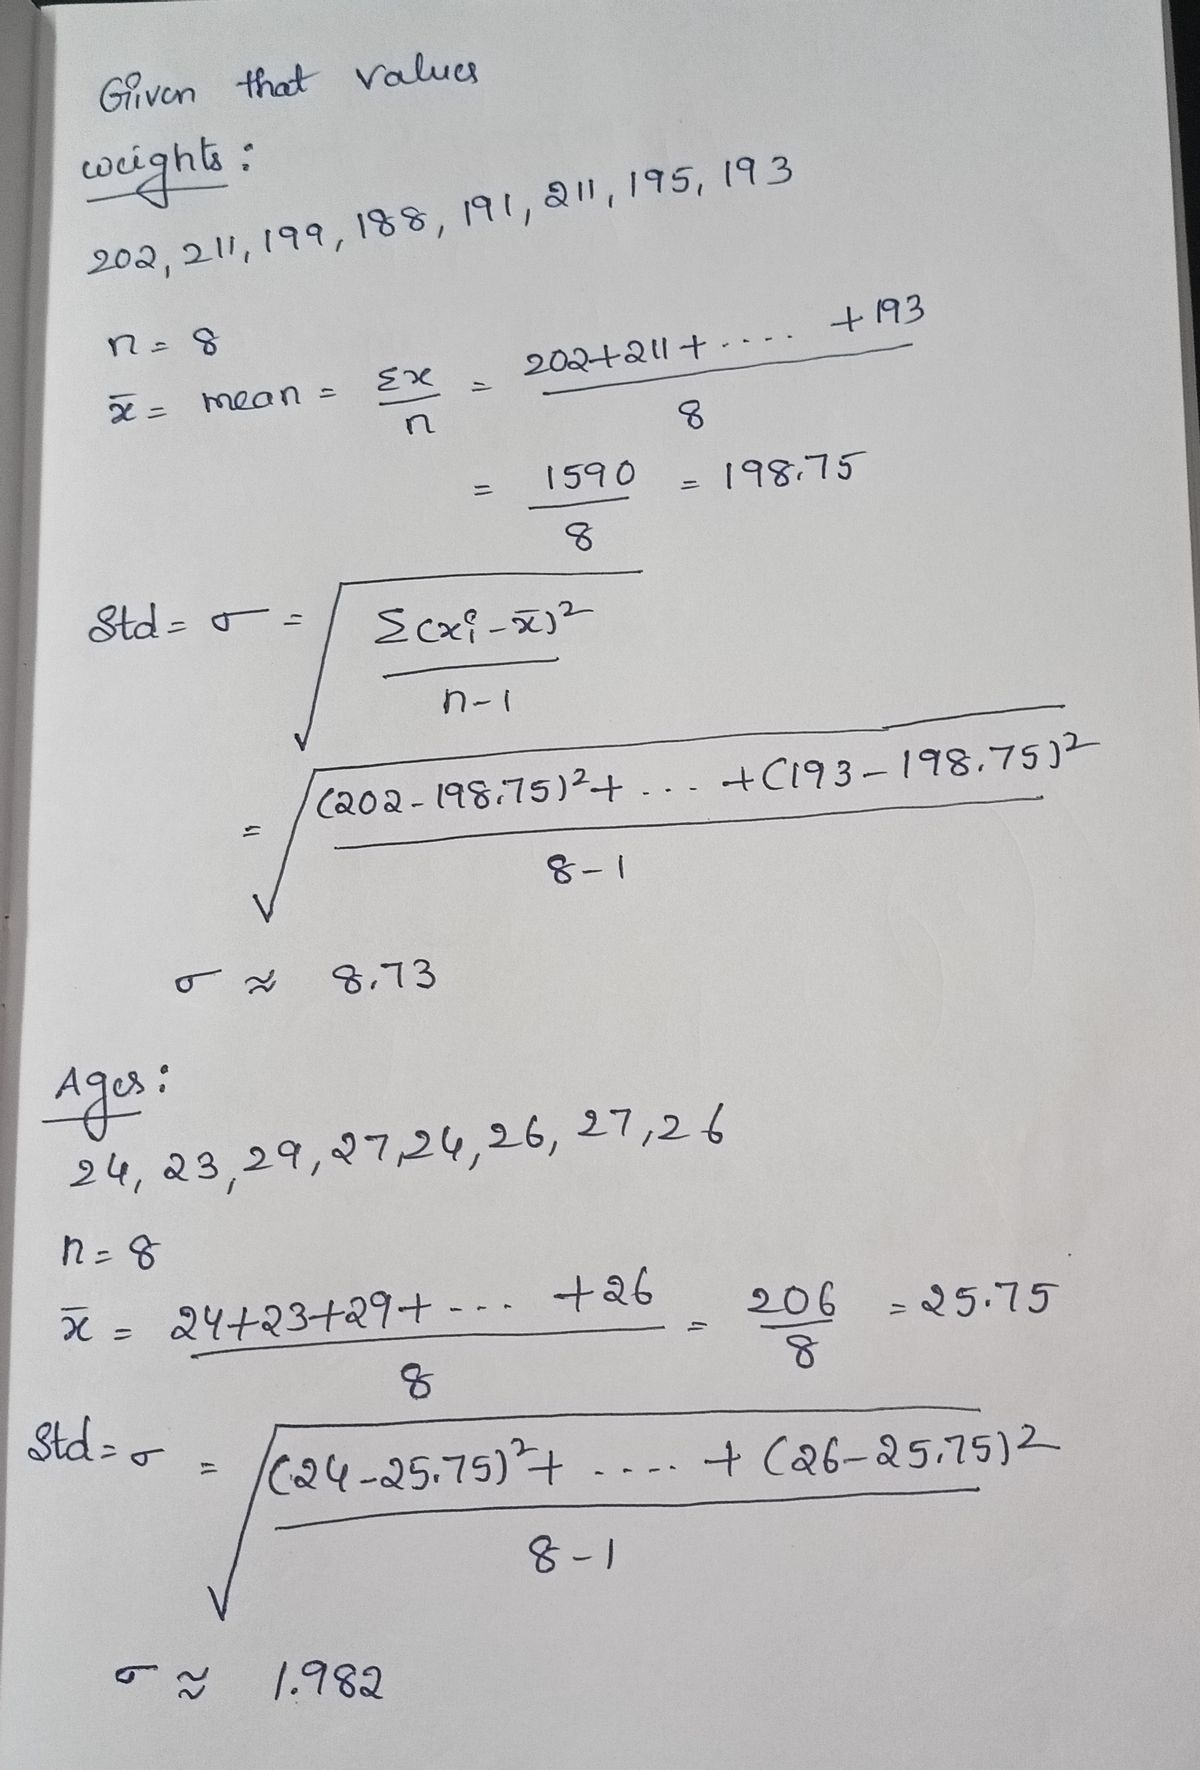 Given that values
weights:
202, 211, 199, 188, 191, 211, 195, 193
n = 8
x̄ = mean = Σx/n = (202+211+.... +193)/8
= 1590/8 = 198.75
Std = σ = √(Σ(xi-x̄)²/(n-1))
= √(((202-198.75)²+ ... +(193-198.75)²)/(8-1))
σ ≈ 8.73
Ages:
24, 23, 29, 27, 24, 26, 27, 26
n = 8
x̄ = (24+23+29+ ... +26)/8 = 206/8 = 25.75
Std = σ = √(((24-25.75)²+ .... + (26-25.75)²)/(8-1))
σ ≈ 1.982